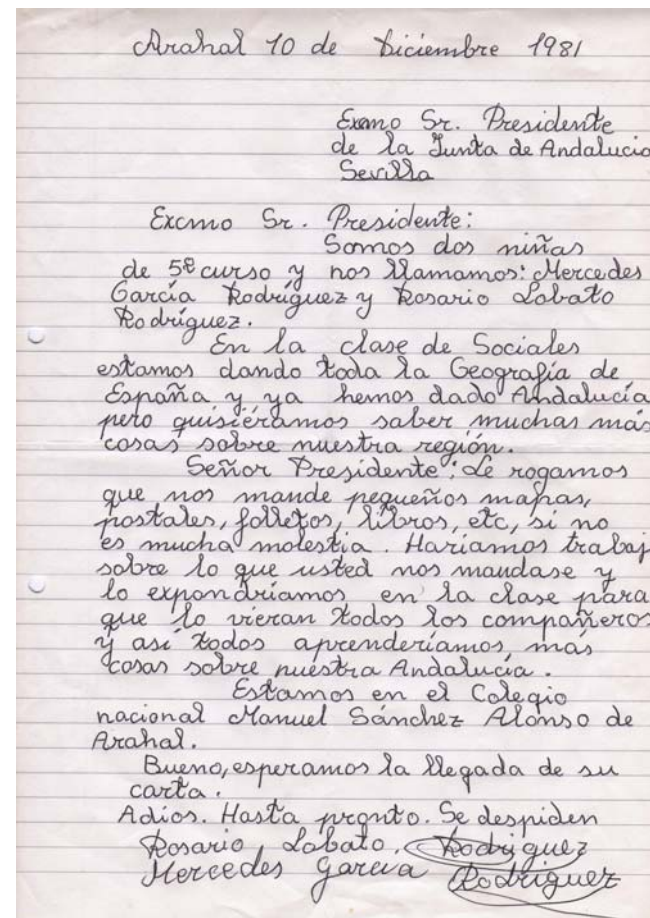 Arahal 10 de Diciembre 1981
Exmo Sr. Presidente
de la Junta de Andalucia
Sevilla
Excmo Sr. Presidente:
Somos dos niñas
de 5º curso y nos llamamos: Mercedes
García Rodríguez y Rosario Lobato
Rodríguez.
En la clase de Sociales
estamos dando toda la Geografía de
España y ya hemos dado Andalucía
pero quisiéramos saber muchas más
cosas sobre nuestra región.
Señor Presidente: Le rogamos
que nos mande pequeños mapas,
postales, folletos, libros, etc, si no
es mucha molestia. Haríamos trabaj
sobre lo que usted nos mandase y
lo expondríamos en la clase para
que lo vieran todos los compañeros
y así todos aprenderíamos más
cosas sobre nuestra Andalucía.
Estamos en el Colegio
nacional Manuel Sánchez Alonso de
Arahal.
Bueno, esperamos la llegada de su
carta.
Adios. Hasta pronto. Se despiden
Rosario Lobato. Rodriguez
Mercedes Garcia Rodriguez